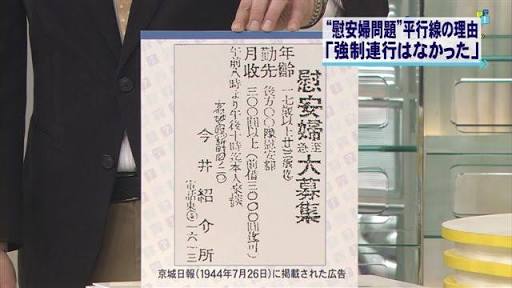 “慰安婦問題”平行線の理由
「強制連行はなかった」
慰安婦至急大募集
年齢 一七歳以上廿三歳迄
勤先 後方〇〇隊慰安部
月収 三〇〇圓以上(前借三〇〇〇圓迄可)
午前八時より午後十時迄本人来談
今井紹介所
電話東⑤一六一三
京城日報(1944年7月26日)に掲載された広告